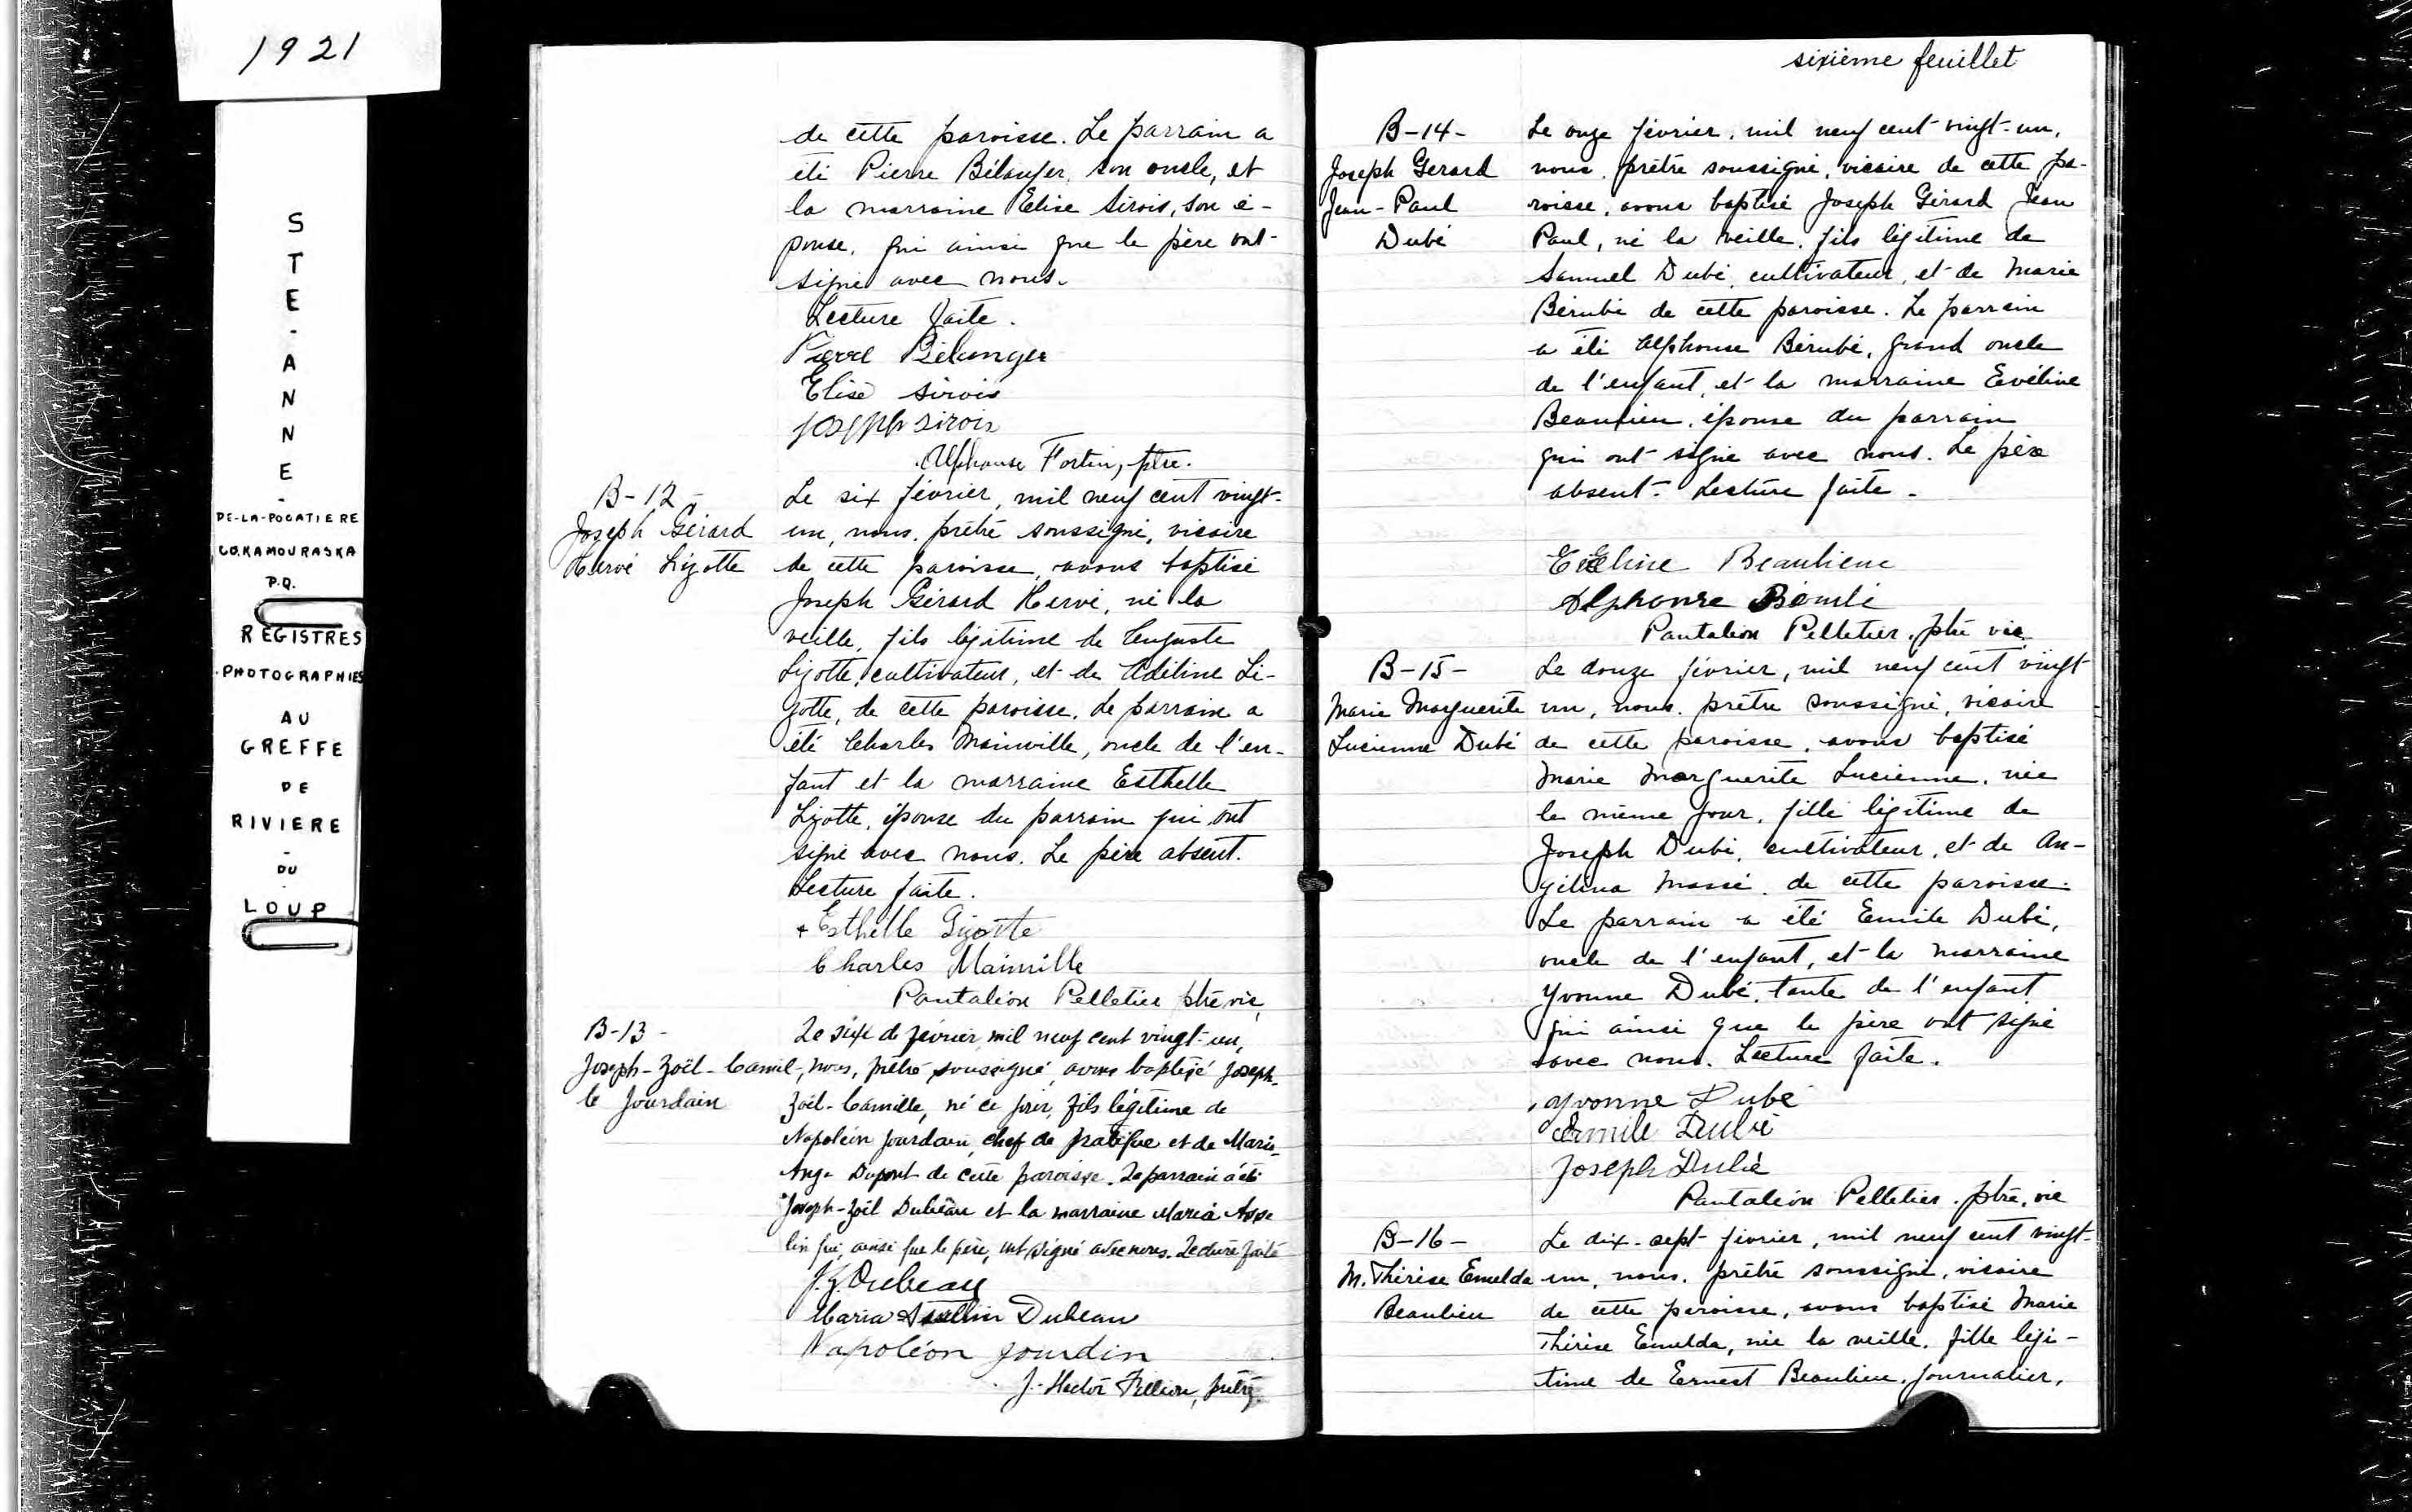 1921
STE-ANNE-
DE-LA-POCATIERE
CO. KAMOURASKA
P.Q.
REGISTRES
PHOTOGRAPHIES
AU
GREFFE
DE
RIVIERE
-
DU
LOUP
de cette paroisse. Le parrain a
été Pierre Bélanger, son oncle, et
la marraine Elise Sirois, son é-
pouse, qui ainsi que le père ont
signé avec nous.
Lecture faite.
Pierre Bélanger
Elise Sirois
Joseph Sirois
Alphonse Fortin, ptre.
B-12-
Joseph Gérard
Hervé Lizotte
Le six février, mil neuf cent vingt-
un, nous, prêtre soussigné, vicaire
de cette paroisse, avons baptisé
Joseph Gérard Hervé, né la
veille, fils légitime de Auguste
Lizotte, cultivateur, et de Adéline Li-
zotte, de cette paroisse. Le parrain a
été Charles Mainville, oncle de l'en-
fant et la marraine Esthelle
Lizotte, épouse du parrain qui ont
signé avec nous. Le père absent.
Lecture faite.
+ Esthelle Lizotte
Charles Mainville
Pantaléon Pelletier ptre vic,
B-13-
Joseph-Zoël-Camil-
le Jourdain
Le six de février mil neuf cent vingt-un,
nous, prêtre soussigné, avons baptisé Joseph-
Zoël-Camille, né ce jour, fils légitime de
Napoléon Jourdain, chef de pratique et de Marie-
Ange Dupont de cette paroisse. Le parrain a été
Joseph-Zoël Dubeau et la marraine Maria Asse
lin qui, ainsi que le père, ont signé avec nous. Lecture faite
J. Z. Dubeau
Maria Asselin Dubeau
Napoléon Jourdin
J.-Hector Fillion, prêtre.
sixième feuillet
B-14-
Joseph Gerard
Jean-Paul
Dubé
Le onze février, mil neuf cent vingt-un,
nous, prêtre soussigné, vicaire de cette pa-
roisse, avons baptisé Joseph Gérard Jean
Paul, né la veille, fils légitime de
Samuel Dubé, cultivateur, et de Marie
Bérubé de cette paroisse. Le parrain
a été Alphonse Bérubé, grand oncle
de l'enfant, et la marraine Evéline
Beaulieu, épouse du parrain
qui ont signé avec nous. Le père
absent- Lecture faite.
Evéline Beaulieu
Alphonse Bérubé
Pantaléon Pelletier, ptre vic.
B-15-
Marie Marguerite
Lucienne Dubé
Le douze février, mil neuf cent vingt
un, nous, prêtre soussigné, vicaire
de cette paroisse, avons baptisé
Marie Marguerite Lucienne, née
le même jour, fille légitime de
Joseph Dubé, cultivateur, et de An-
gélina Massé, de cette paroisse.
Le parrain a été Emile Dubé,
oncle de l'enfant, et la marraine
Yvonne Dubé, tante de l'enfant
qui ainsi que le père ont signé
avec nous. Lecture faite.
Yvonne Dubé
Emile Dubé
Joseph Dubé
Pantaléon Pelletier, ptre, vic
B-16-
M. Thérèse Emelda
Beaulieu
Le dix-sept février, mil neuf cent vingt-
un, nous, prêtre soussigné, vicaire
de cette paroisse, avons baptisé Marie
Thérèse Emelda, née la veille, fille légi-
time de Ernest Beaulieu, journalier,